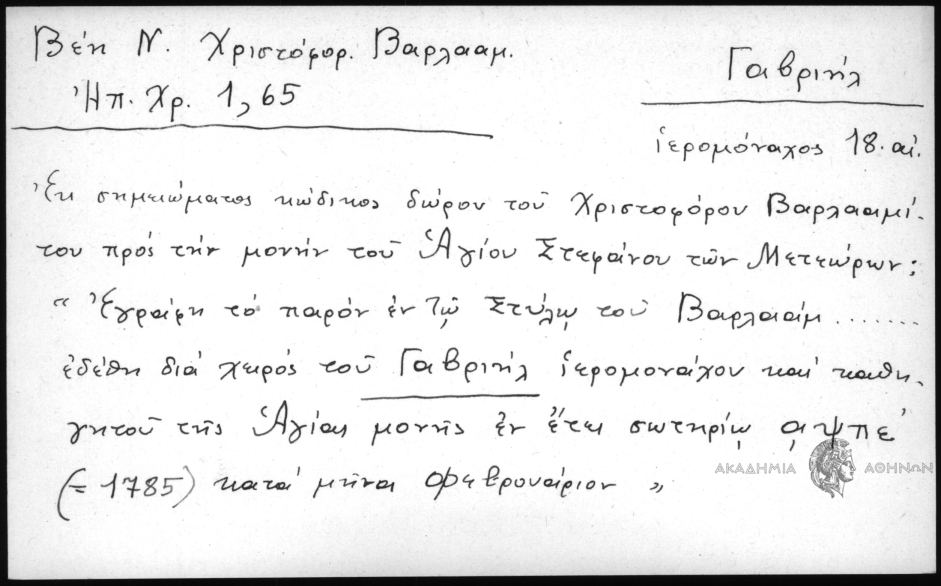 Βέη Ν. Χριστόφορ. Βαρλααμ.
Ἠπ. Χρ. 1, 65
Γαβριήλ
ἱερομόναχος 18. αἰ.
Ἐκ σημειώματος κώδικος δώρου τοῦ Χριστοφόρου Βαρλααμί-
του πρός τήν μονήν τοῦ Ἁγίου Στεφάνου τῶν Μετεώρων:
“ Ἐγράφη τό παρόν ἐν τῷ Στύλῳ τοῦ Βαρλαάμ .......
ἐδέθη διά χειρός τοῦ Γαβριήλ ἱερομονάχου καί καθη-
γητοῦ τῆς Ἁγίας μονῆς ἐν ἔτει σωτηρίῳ ͵αψπε΄
(= 1785) κατά μῆνα Φεβρουάριον „
ΑΚΑΔΗΜΙΑ ΑΘΗΝΩΝ